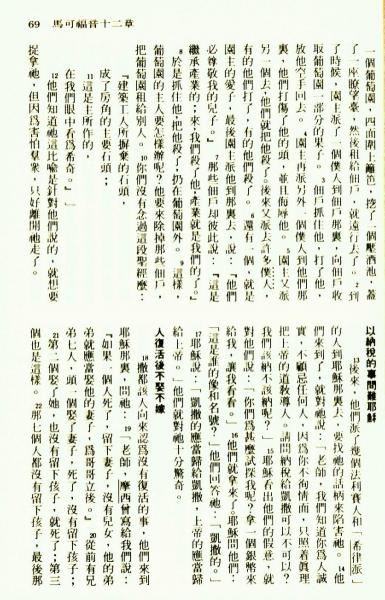 69 馬可福音十二章
一個葡萄園，四面圍上籬笆，挖了一個壓酒池，蓋
了一座瞭望臺，然後租給佃戶，就遠行去了。2到
了時候，園主派了一個僕人到佃戶那裏，向佃戶收
取葡萄園一部分的果子。3佃戶抓住他，打了他，
放他空手回去。4園主再派另外一個僕人到他們那
裏，他們打傷了他的頭，並且侮辱他。5園主又派
另一個去，他們就把他殺了。後來又派去許多僕人，
有的他們打了，有的他們殺了。6還有一個，就是
園主的愛子，最後園主派他到那裏去，說：『他們
必尊敬我的兒子。』7那些佃戶却彼此說：『這是
繼承產業的；來，我們殺了他，產業就是我們的了。』
8於是抓住他，把他殺了，扔在葡萄園外。9這樣，
葡萄園的主人要怎樣辦呢？他要來除掉那些佃戶，
把葡萄園租給別人。10你們沒有念過這段聖經麼：
『建築工人所摒棄的石頭，
成了房角的主要石頭；
11這是主所作的，
在我們眼中看爲希奇。』」
12他們知道祂這比喻是針對他們說的，就想要
捉拿祂，但因爲害怕羣衆，只好離開祂走了。
以納稅的事問難耶穌
13後來，他們派了幾個法利賽人和「希律派」
的人到耶穌那裏去，要找祂的話柄來陷害祂。14他
們來到了，就對祂說：「老師，我們知道你爲人誠
實，不顧忌任何人，因爲你不徇情面，只照着眞理
把上帝的道教導人。請問納稅給凱撒可以不可以？
我們該納不該納呢？」15耶穌看出他們的假意，就
對他們說：「你們爲甚麼試探我呢？拿一個銀幣來
給我，讓我看看。」16他們就拿來了。耶穌問他們：
「這是誰的像和名號？」他們回答祂：「凱撒的。」
17耶穌說：「凱撒的應當歸給凱撒，上帝的應當歸
給上帝。」他們就對祂十分驚奇。
人復活後不娶不嫁
18撒都該人向來認爲沒有復活的事，他們來到
耶穌那裏，問祂：19「老師，摩西曾寫給我們說：
『如果一個人死了，留下妻子，沒有兒女，他的弟
弟就應當娶他的妻子，爲哥哥立後。』20從前有兄
弟七人，頭一個娶了妻子，死了，沒有留下孩子；
21第二個娶了她，也沒有留下孩子，就死了；第三
個也是這樣。22那七個人都沒有留下孩子，最後那